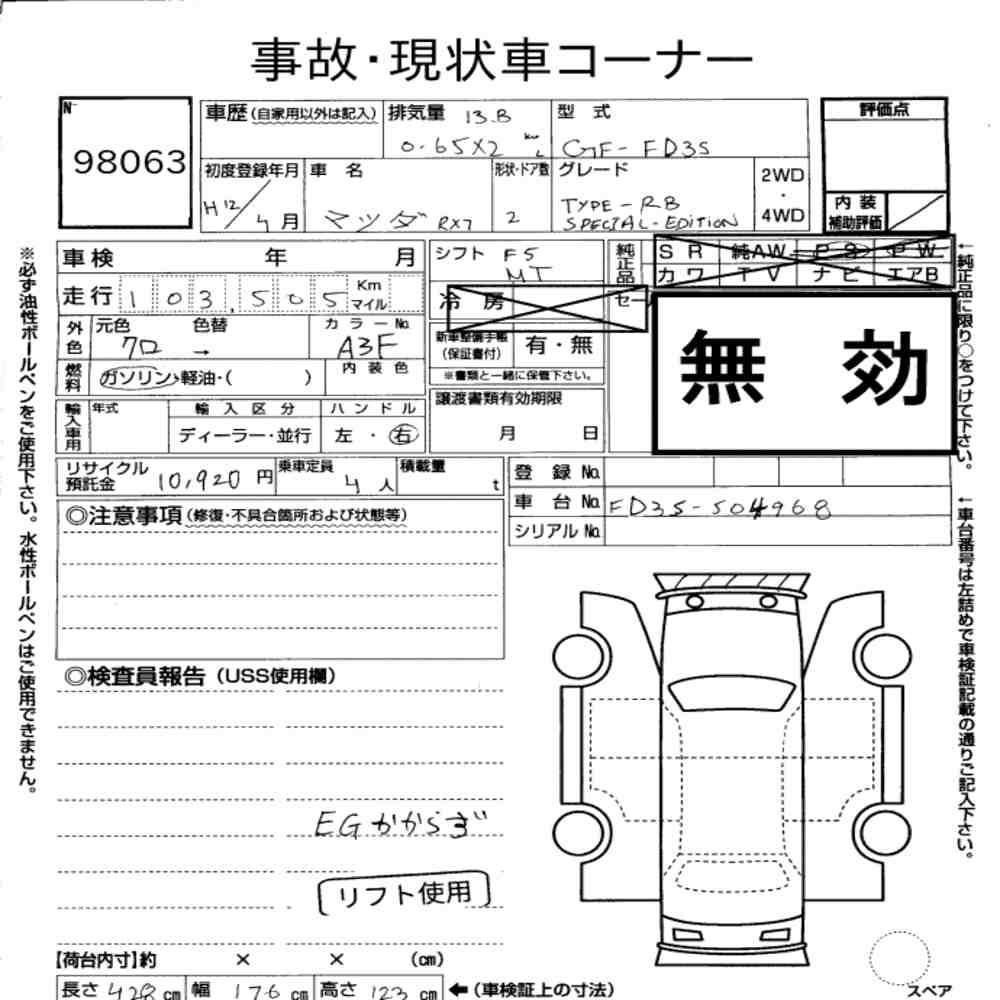 事故・現状車コーナー
No
98063
車歴（自家用以外は記入）
排気量 13.B
0.65X2 L
型 式
GF-FD3S
評価点
初度登録年月
H12/4月
車 名
マツダ RX7
形状・ドア数
2
グレード
TYPE-RB
SPECIAL-EDITION
2WD
・
4WD
内 装
補助評価
車検 年 月
シフト F5
MT
純正品
SR 純AW PS PW
カワ TV ナビ エアB
走行 103,505 Km
マイル
冷 房
セー
無 効
外色
元色 色替
クロ →
カラーNo.
A3F
新車整備手帳
（保証書付）
有・無
※書類と一緒に保管下さい。
燃料
ガソリン・軽油・( )
内装色
輸入車用
年式
輸入区分
ディーラー・並行
ハンドル
左・右
譲渡書類有効期限
月 日
リサイクル
預託金 10,920 円
乗車定員
4 人
積載量
t
登 録 No.
車 台 No. FD3S-504968
シリアル No.
◎注意事項（修復・不具合箇所および状態等）
◎検査員報告（USS使用欄）
EGかからず
リフト使用
【荷台内寸】約 × × （cm）
長さ 428 cm 幅 176 cm 高さ 123 cm ←（車検証上の寸法）
スペア
※必ず油性ボールペンをご使用下さい。水性ボールペンはご使用できません。
←純正品に限り○をつけて下さい。
←車台番号は左詰めで車検証記載の通りご記入下さい。